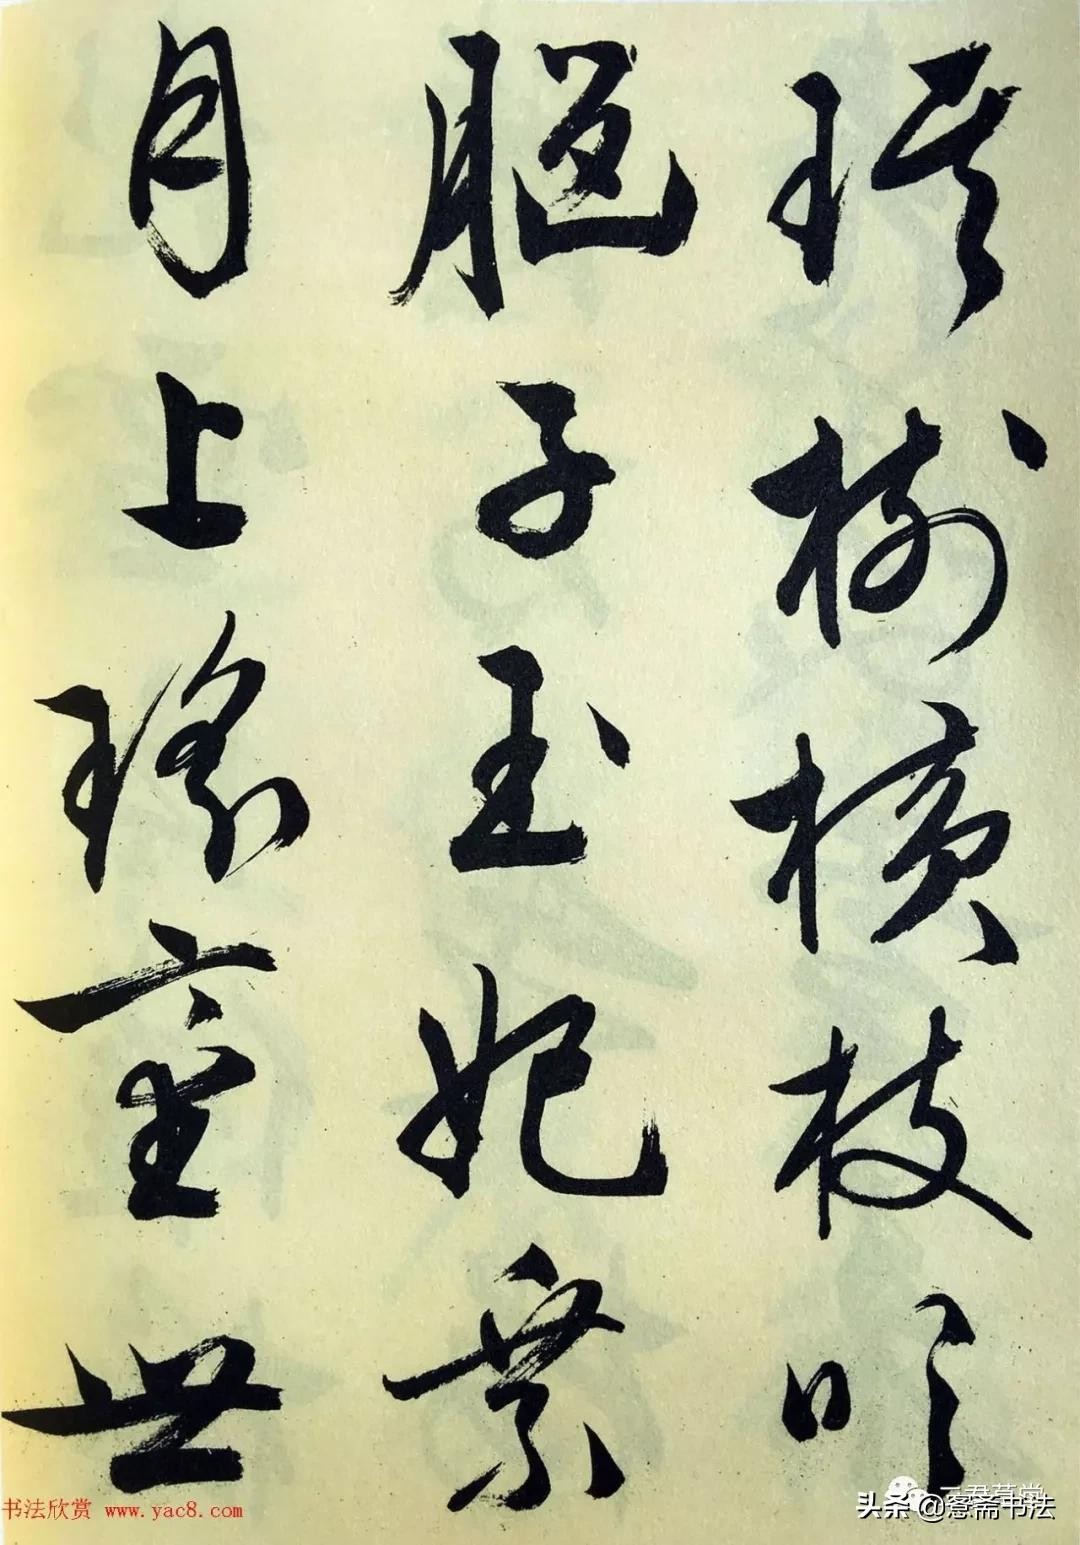 琪樹橫枝吹
腦子玉妃乘
月上瑤臺世
书法欣赏 www.yac8.com
头条 @愙斋书法